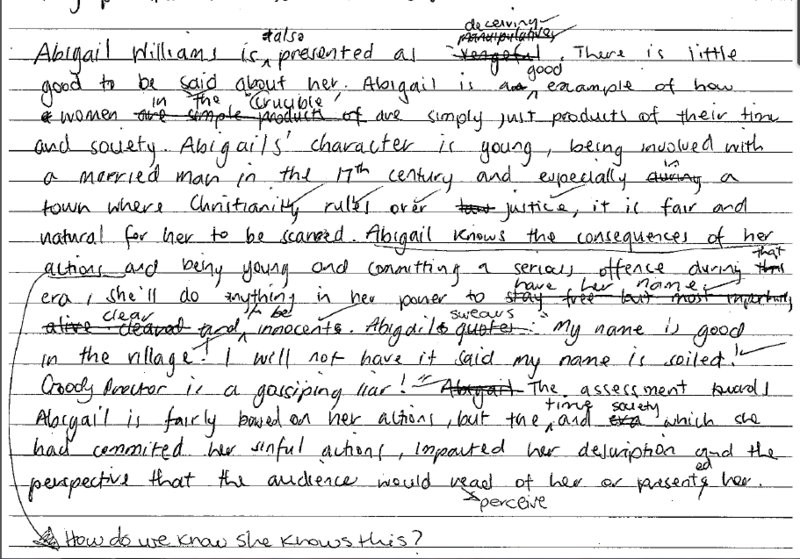 Abigail Williams is ^also presented as deceiving. There is little
good to be said about her. Abigail is a good example of how
women in the 'Crucible' are simply just products of their time
and society. Abigails' character is young, being involved with
a married man in the 17th century and especially in a
town where Christianity rules over justice, it is fair and
natural for her to be scarred. Abigail knows the consequences of her
actions and being young and committing a serious offence during that
era, she'll do anything in her power to have her name
clear and to be innocent. Abigail swears: "My name is good
in the village! I will not have it said my name is soiled!
Goody Proctor is a gossiping liar!" The assessment towards
Abigail is fairly based on her actions, but the time and society which she
had commited her sinful actions, impacted her description and the
perspective that the audience would read of her or presented her.
perceive
How do we know she knows this?